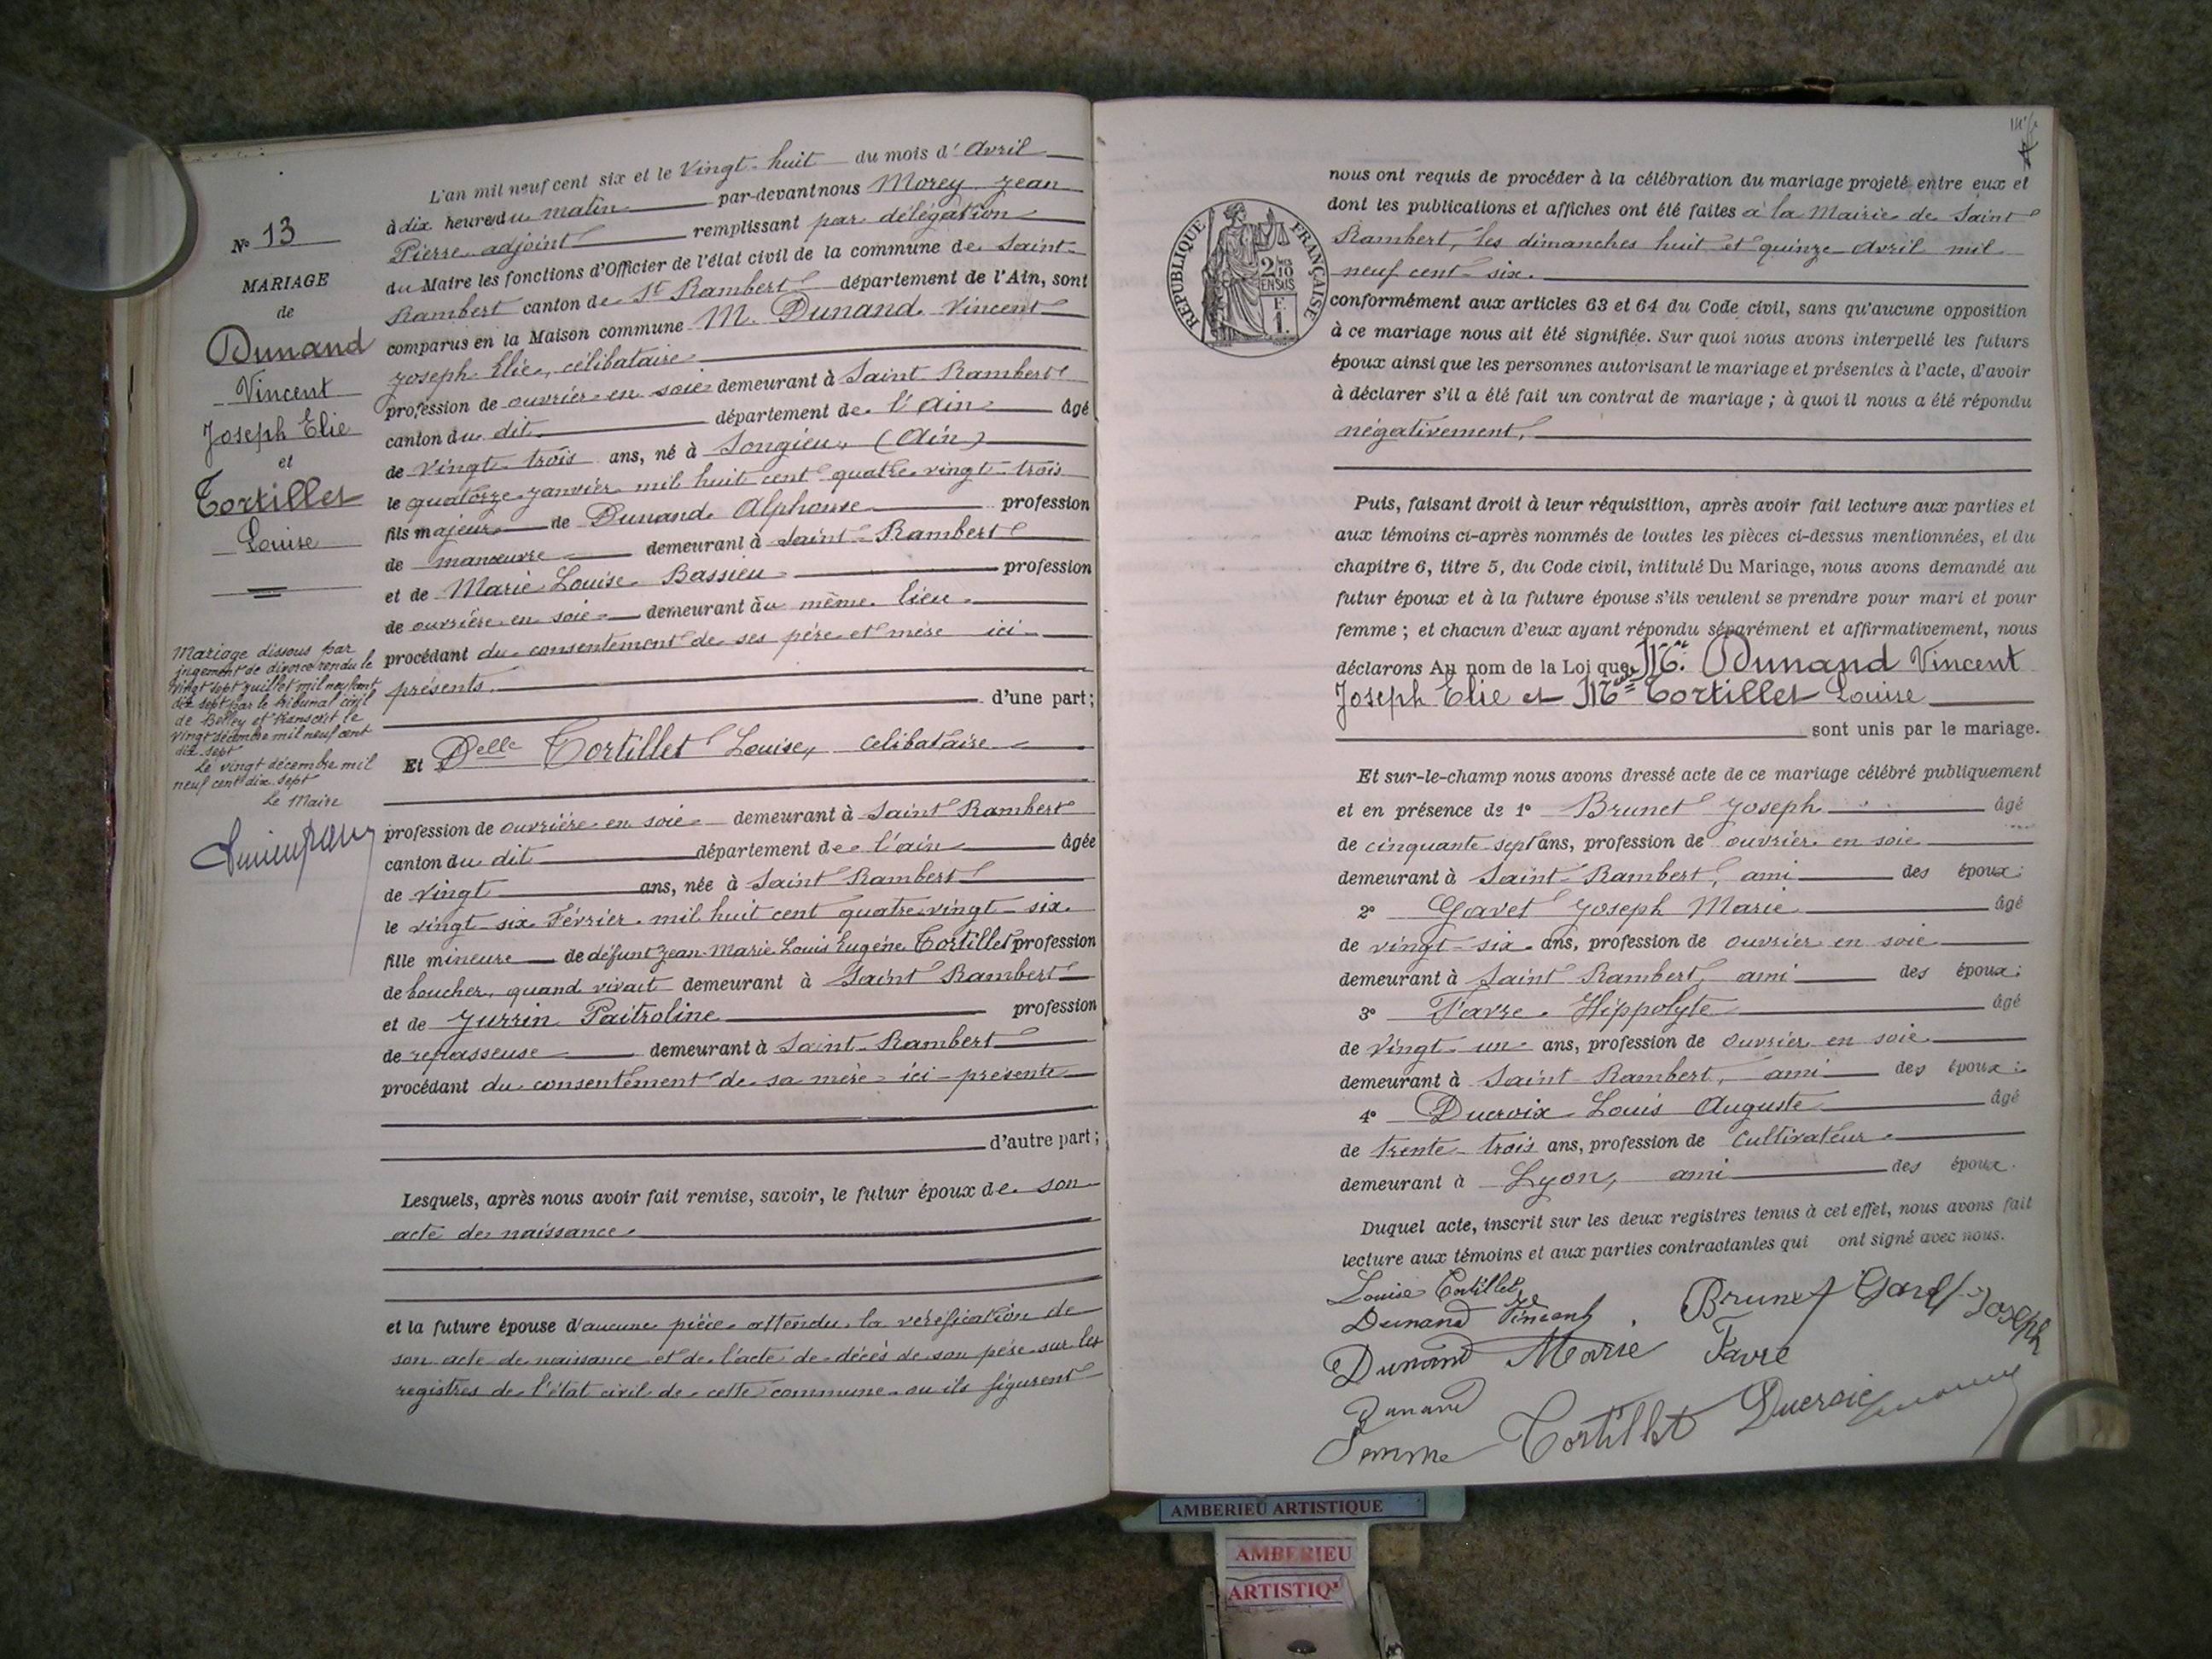 N° 13
MARIAGE
de
Dunand
Vincent
Joseph Elie
et
Tortillet
Louise
Mariage dissous par
jugement de divorce rendu le
vingt sept juillet mil neuf cent
dix sept par le tribunal civil
de Belley et transcrit le
vingt décembre mil neuf cent
dix sept
Le vingt décembre mil
neuf cent dix sept
Le Maire
L'an mil neuf cent six et le Vingt-huit du mois d'Avril
à dix heures du matin par-devant nous Morey Jean
Pierre adjoint remplissant par délégation
du Maire les fonctions d'Officier de l'état civil de la commune de Saint-
Rambert canton de St Rambert département de l'Ain, sont
comparus en la Maison commune M. Dunand Vincent
Joseph Elie, célibataire
profession de ouvrier en soie demeurant à Saint Rambert
canton du dit département de l'Ain âgé
de vingt trois ans, né à Songieu, (Ain)
le quatorze janvier mil huit cent quatre vingt-trois
fils majeur de Dunand Alphonse profession
de manœuvre demeurant à Saint-Rambert
et de Marie Louise Bassieu profession
de ouvrière en soie demeurant au même lieu
procédant du consentement de ses père et mère ici
présents. d'une part;
Et Delle Tortillet Louise, célibataire
profession de ouvrière en soie demeurant à Saint Rambert
canton du dit département de l'ain âgée
de vingt ans, née à Saint Rambert
le vingt-six Février mil huit cent quatre vingt-six.
fille mineure de défunt Jean-Marie Louis Eugène Tortillet profession
de boucher, quand vivait demeurant à Saint Rambert
et de Jurrin Paitroline profession
de repasseuse demeurant à Saint-Rambert
procédant du consentement de sa mère ici-présente
d'autre part;
Lesquels, après nous avoir fait remise, savoir, le futur époux de son
acte de naissance
et la future épouse d'aucune pièce attendu la vérification de
son acte de naissance et de l'acte de décès de son père sur les
registres de l'état civil de cette commune ou ils figurent
RÉPUBLIQUE FRANÇAISE
2/10
EN SUS
F
1.
nous ont requis de procéder à la célébration du mariage projeté entre eux et
dont les publications et affiches ont été faites à la Mairie de Saint
Rambert, les dimanches huit et quinze Avril mil
neuf cent six.
conformément aux articles 63 et 64 du Code civil, sans qu'aucune opposition
à ce mariage nous ait été signifiée. Sur quoi nous avons interpellé les futurs
époux ainsi que les personnes autorisant le mariage et présentes à l'acte, d'avoir
à déclarer s'il a été fait un contrat de mariage ; à quoi il nous a été répondu
négativement.
Puis, faisant droit à leur réquisition, après avoir fait lecture aux parties et
aux témoins ci-après nommés de toutes les pièces ci-dessus mentionnées, et du
chapitre 6, titre 5, du Code civil, intitulé Du Mariage, nous avons demandé au
futur époux et à la future épouse s'ils veulent se prendre pour mari et pour
femme ; et chacun d'eux ayant répondu séparément et affirmativement, nous
déclarons Au nom de la Loi que Mr. Dunand Vincent
Joseph Elie et Melle Tortillet Louise
sont unis par le mariage.
Et sur-le-champ nous avons dressé acte de ce mariage célébré publiquement
et en présence de 1° Brunet Joseph âgé
de cinquante sept ans, profession de ouvrier en soie
demeurant à Saint Rambert, ami des époux;
2° Gavet Joseph Marie âgé
de vingt-six ans, profession de ouvrier en soie
demeurant à Saint Rambert, ami des époux;
3° Favre Hippolyte âgé
de vingt-un ans, profession de ouvrier en soie
demeurant à Saint-Rambert, ami des époux;
4° Ducroix Louis Auguste âgé
de trente-trois ans, profession de cultivateur
demeurant à Lyon, ami des époux.
Duquel acte, inscrit sur les deux registres tenus à cet effet, nous avons fait
lecture aux témoins et aux parties contractantes qui ont signé avec nous.
Louise Tortillet
Dunand Vincent Brunet Gavet Joseph
Dunand Marie Favre
Dunand
Femme Tortillet Ducroix
AMBERIEU ARTISTIQUE
AMBERIEU
ARTISTIQ